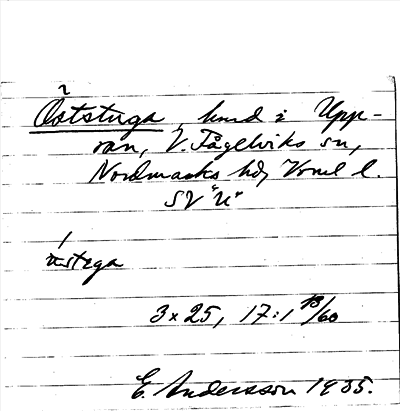 Öststuga, kund i Upp-
ran, V. Fågelviks sn,
Nordmarks hd, Vrml l.
SV "U"
ústega
3x25, 17:1 13/60
E. Andersson 1935.